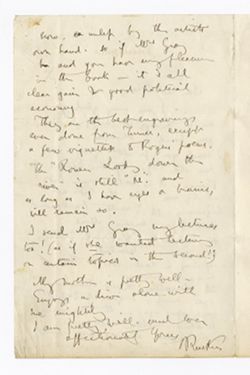 now, as unless by the artist's
own hand. So if Mrs Gray
he and you have any pleasure
in the book — it is all
clear gain & good political
economy
They are the best engravings
ever done from Turner, except
a few vignettes to Rogers' poems.
The down the
river" is still "it". and
as long as I have eyes or brains,
will remain so.
I send Mrs Gray my lectures
too! (as if she wanted lecturing
on certain topics in the second!)
My mother is pretty well—
Enjoys a drive alone with
me mightily
I am pretty well. and ever
affectionately Yours
JRuskin